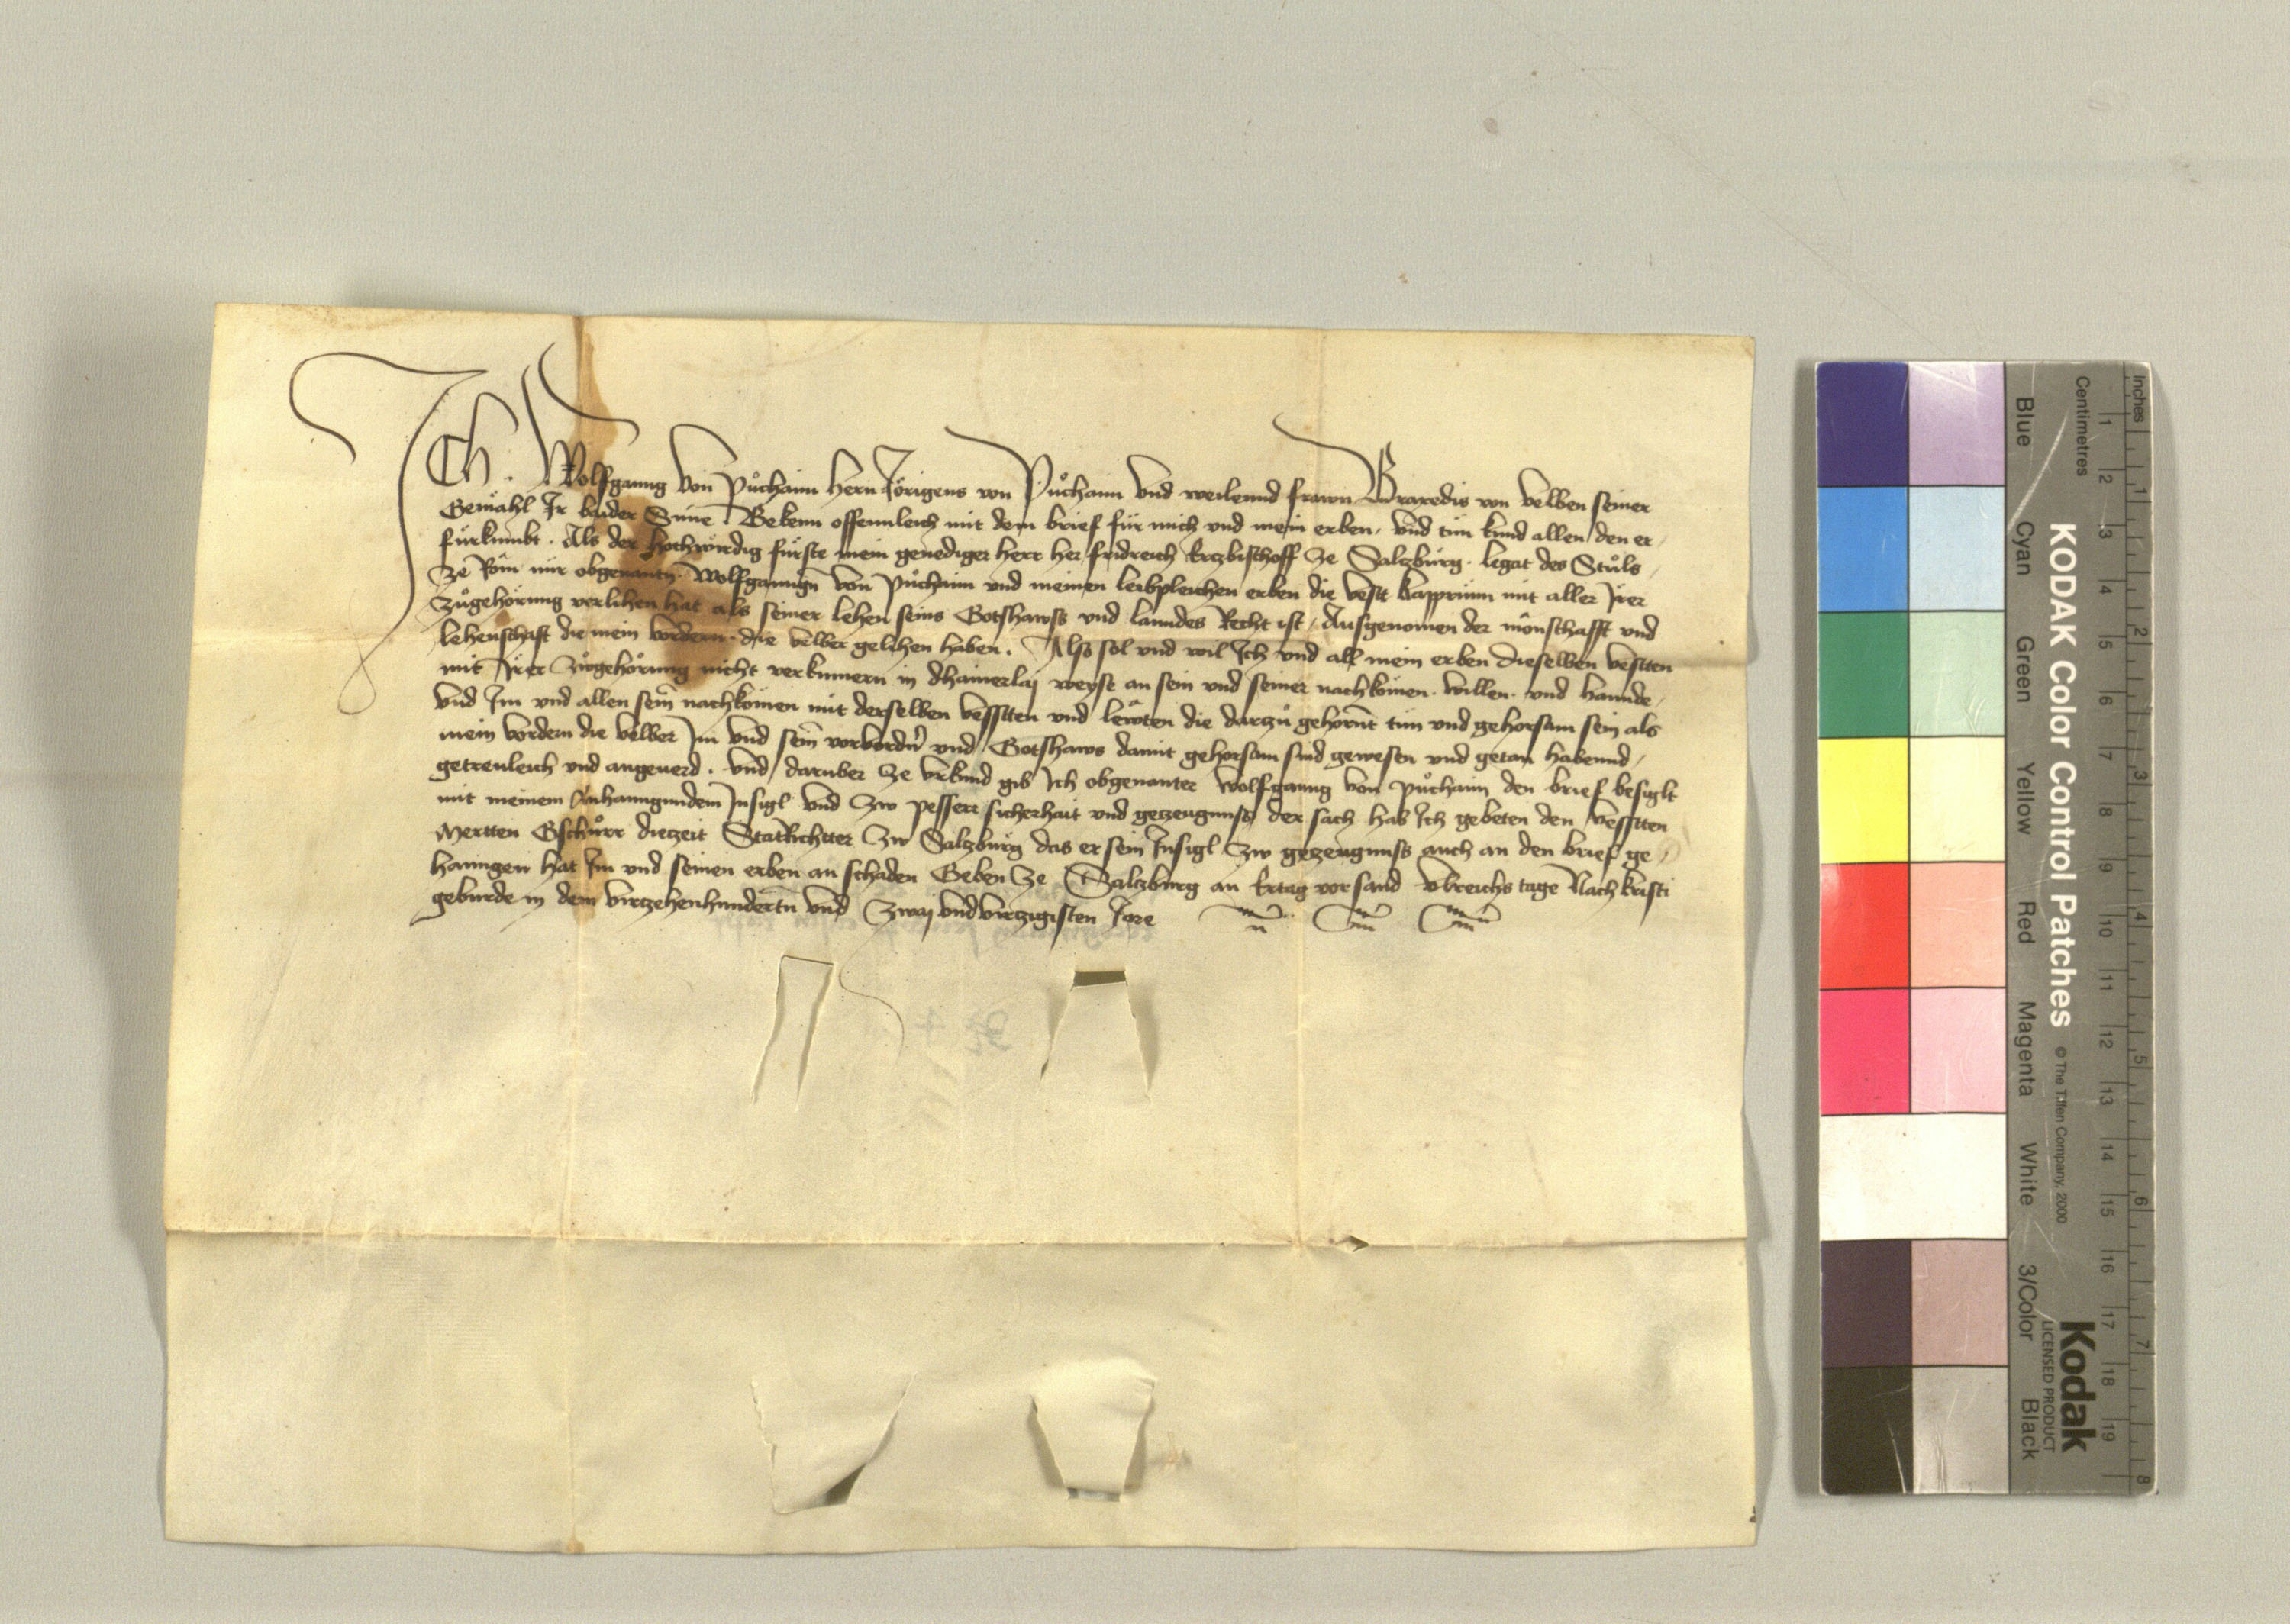 Ich Wolfganng von Půchaim Hern Jörigens von Půchaim vnd weilennd frawn Praxedis von Velben seiner
Gemähl Ir baider Sune Bekenn offennleich mit dem brief für mich vnd mein erben, vnd tun kund allen den er
fürkumbt. Als der hochwirdig fürste mein genediger herr her fridreich Ertzbischoff ze Salzburg. legat des Stuls
ze Rom mir obgenantn Wolfganngn von Půchaim vnd meinen leibpleichen erben die vesst kapprünn mit aller Irer
zugehörung verlihen hat als seiner lehen seins Gotshawss vnd lanndes Recht ist, Ausgenomen der manschafft vnd
lehenschaft die mein vordern die velber gelihen haben. Also sol vnd wil Ich vnd all mein erben dieselben vestten
mit Irer Zugehörung nicht verkumern in dhainerlaj weyse an sein vnd seiner nachkömen willen vnd hannde,
vnd Im vnd allen sein nachkömen mit derselben vessten vnd lewten die darzu gehornt tun vnd gehorsam sein als
mein vordern die velber Im vnd sein vorvordern vnd Gotshaws damit gehorsam sind gewesen vnd getan habennd,
getrewleich vnd angeuerd. vnd darüber ze vrkund gib Ich obgenanter Wolfganng von Půchaim den brief besiglt
mit meinem Anhanngundem Insigl vnd zw pesserr sicherhait vnd getzeugnuss der sach hab Ich gebeten den vessten
Mertten Gschürr diezeit StatRichtter zw Salzburg das er sein Insigl zw gezeugnuss auch an den brief ge
hanngen hat Im vnd seinen erben an schaden Geben ze Salzburg an Ertag vor sand Vlreichs tage Nach kristi
geburde in dem virtzehenhundertn vnd zwaj vnd virtzigisten Jare
KODAK Color Control Patches
© The Tiffen Company, 2000
Kodak
LICENSED PRODUCT
Blue Cyan Green Yellow Red Magenta White 3/Color Black
Inches
1 2 3 4 5 6 7 8
Centimetres
1 2 3 4 5 6 7 8 9 10 11 12 13 14 15 16 17 18 19